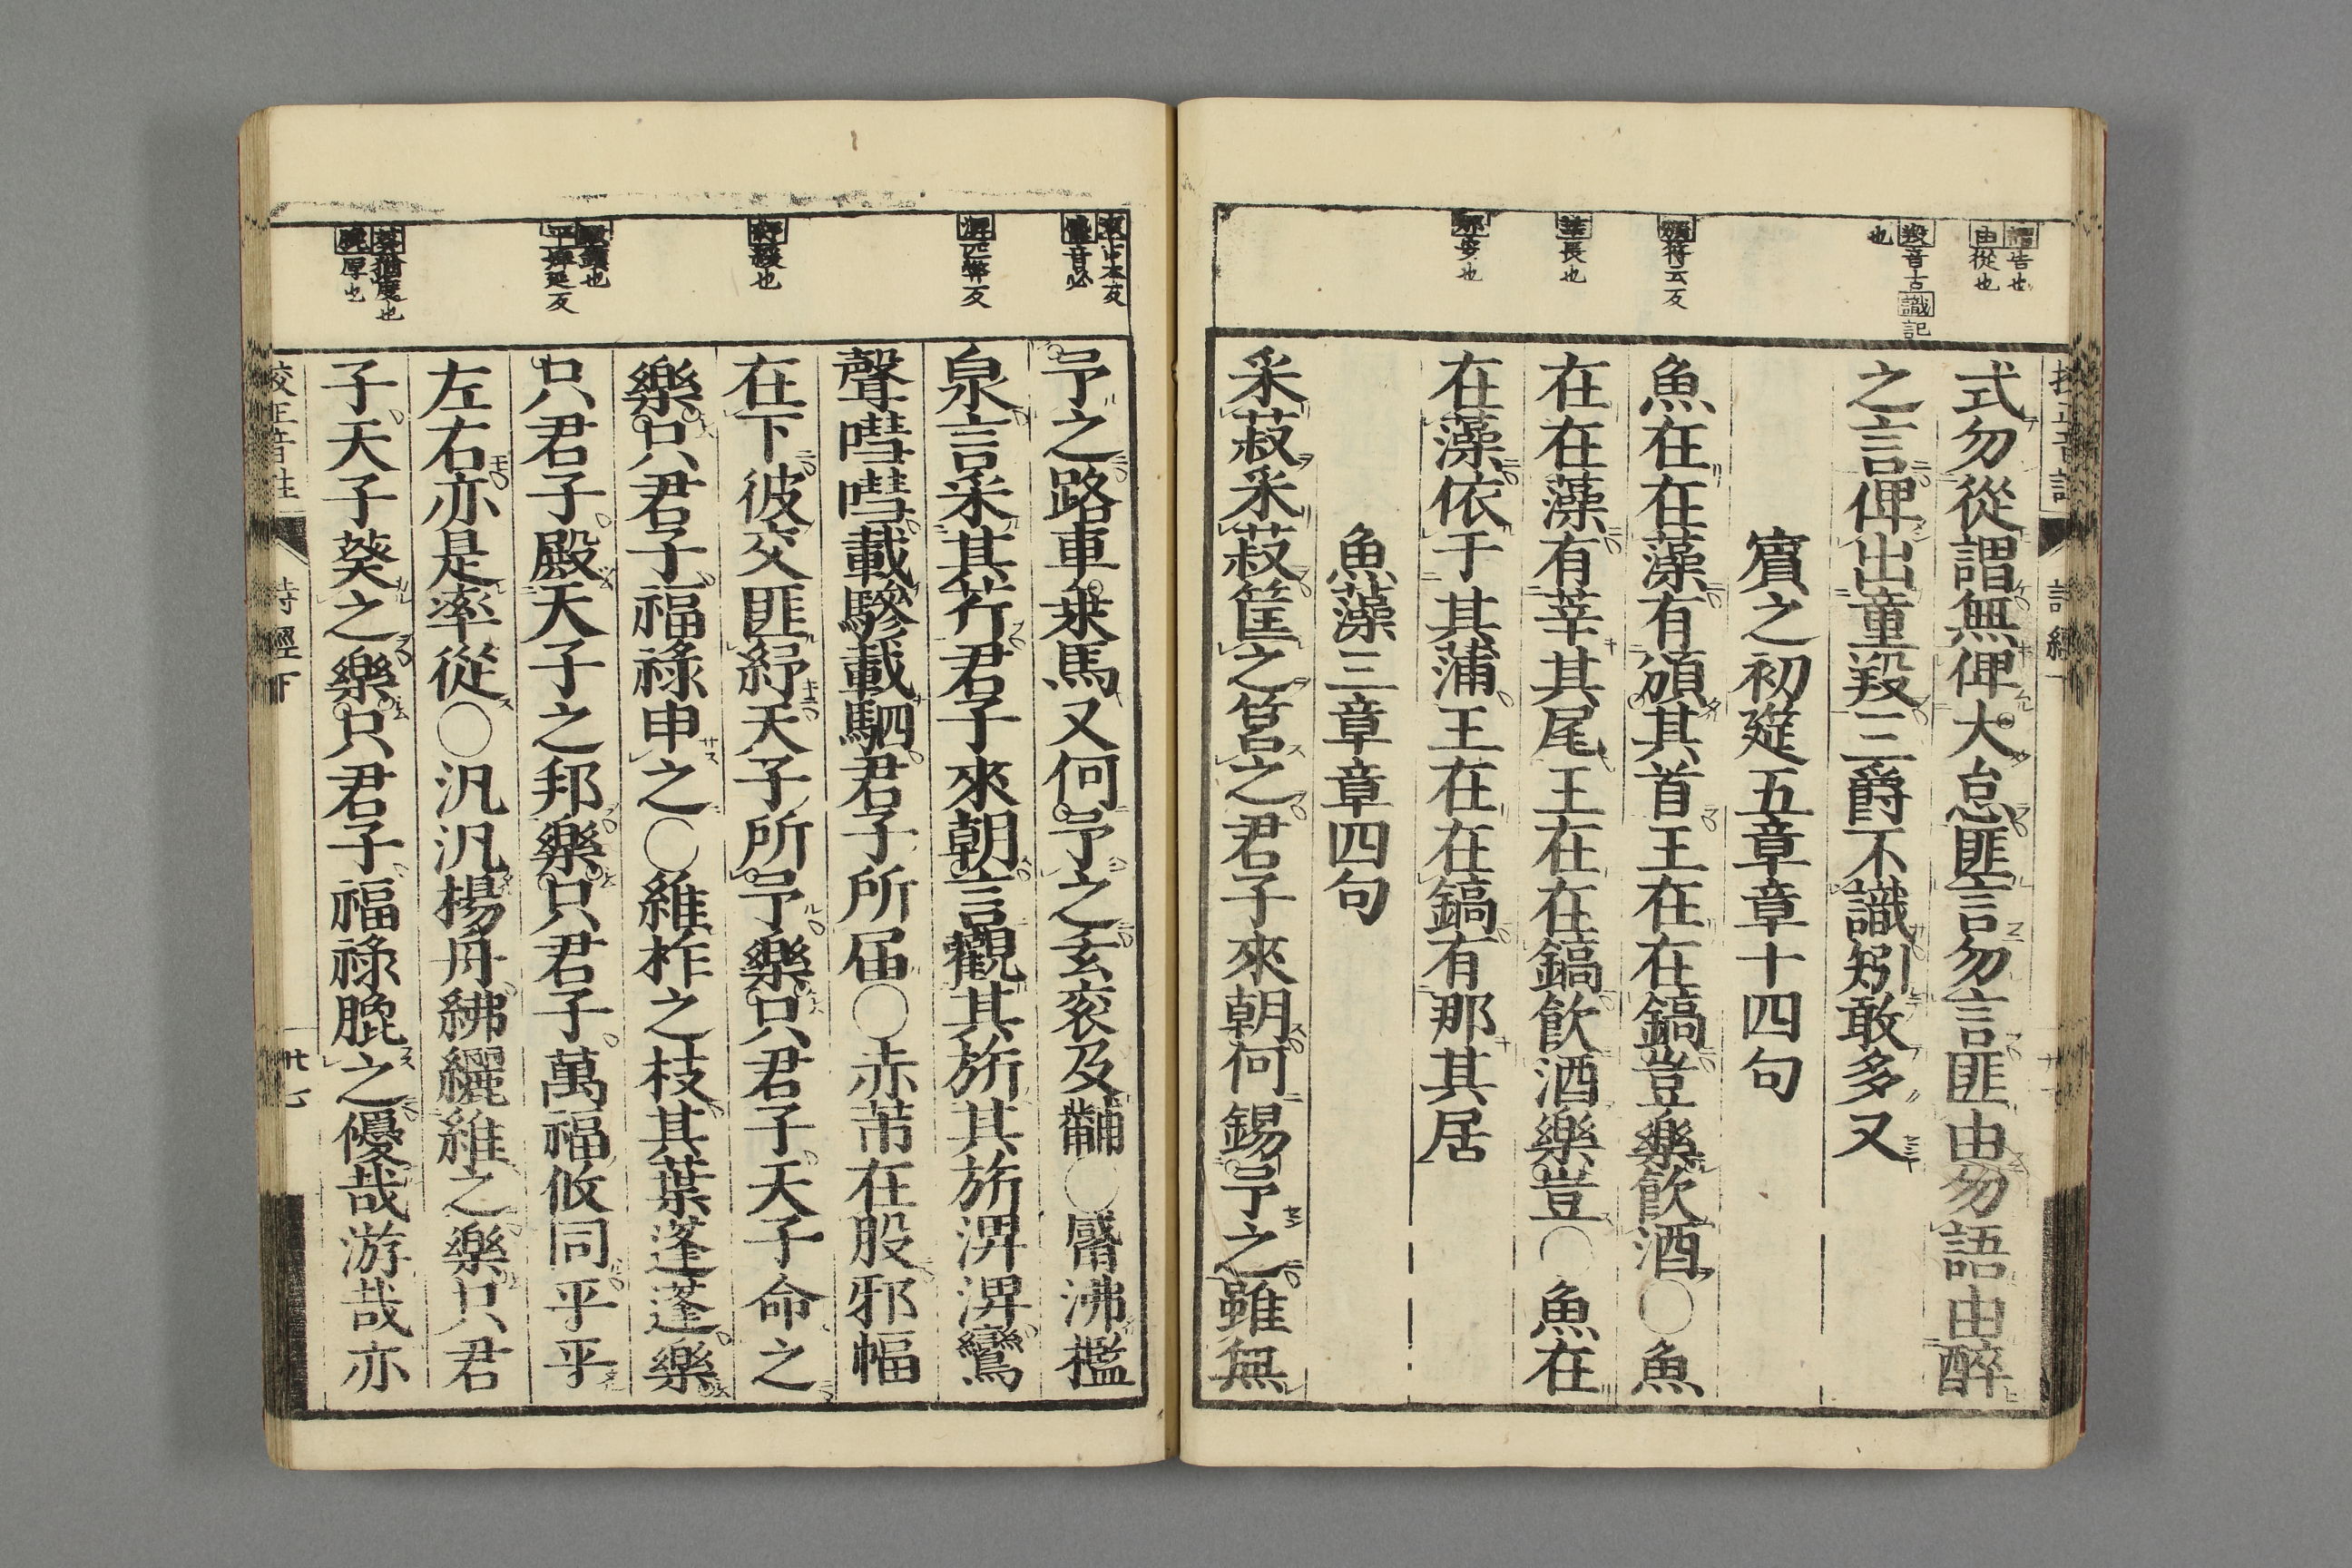 謂告也
由從也
羖音古識記
也
頒符云反
莘長也
那安也
式勿從謂無俾大怠匪言勿言匪由勿語由醉
之言俾出童羖三爵不識矧敢多又
賓之初筵五章章十四句
魚在在藻有頒其首王在在鎬豈樂飲酒〇魚
在在藻有莘其尾王在在鎬飲酒樂豈〇魚在
在藻依于其蒲王在在鎬有那其居
魚藻三章章四句
采菽采菽筐之筥之君子來朝何錫予之雖無
音必
淠匹弊反
紓緩也
葵揆度也
膍厚也
予之路車乘馬又何予之玄袞及黼〇觱沸檻
泉言采其芹君子來朝言觀其旂其旂淠淠鸞
聲嘒嘒載驂載駟君子所届〇赤芾在股邪幅
在下彼交匪紓天子所予樂只君子天子命之
樂只君子福祿申之〇維柞之枝其葉蓬蓬樂
只君子殿天子之邦樂只君子萬福攸同平平
左右亦是率從〇汎汎楊舟紼纚維之樂只君
子天子葵之樂只君子福祿膍之優哉游哉亦
校正音註 詩經下 卅七